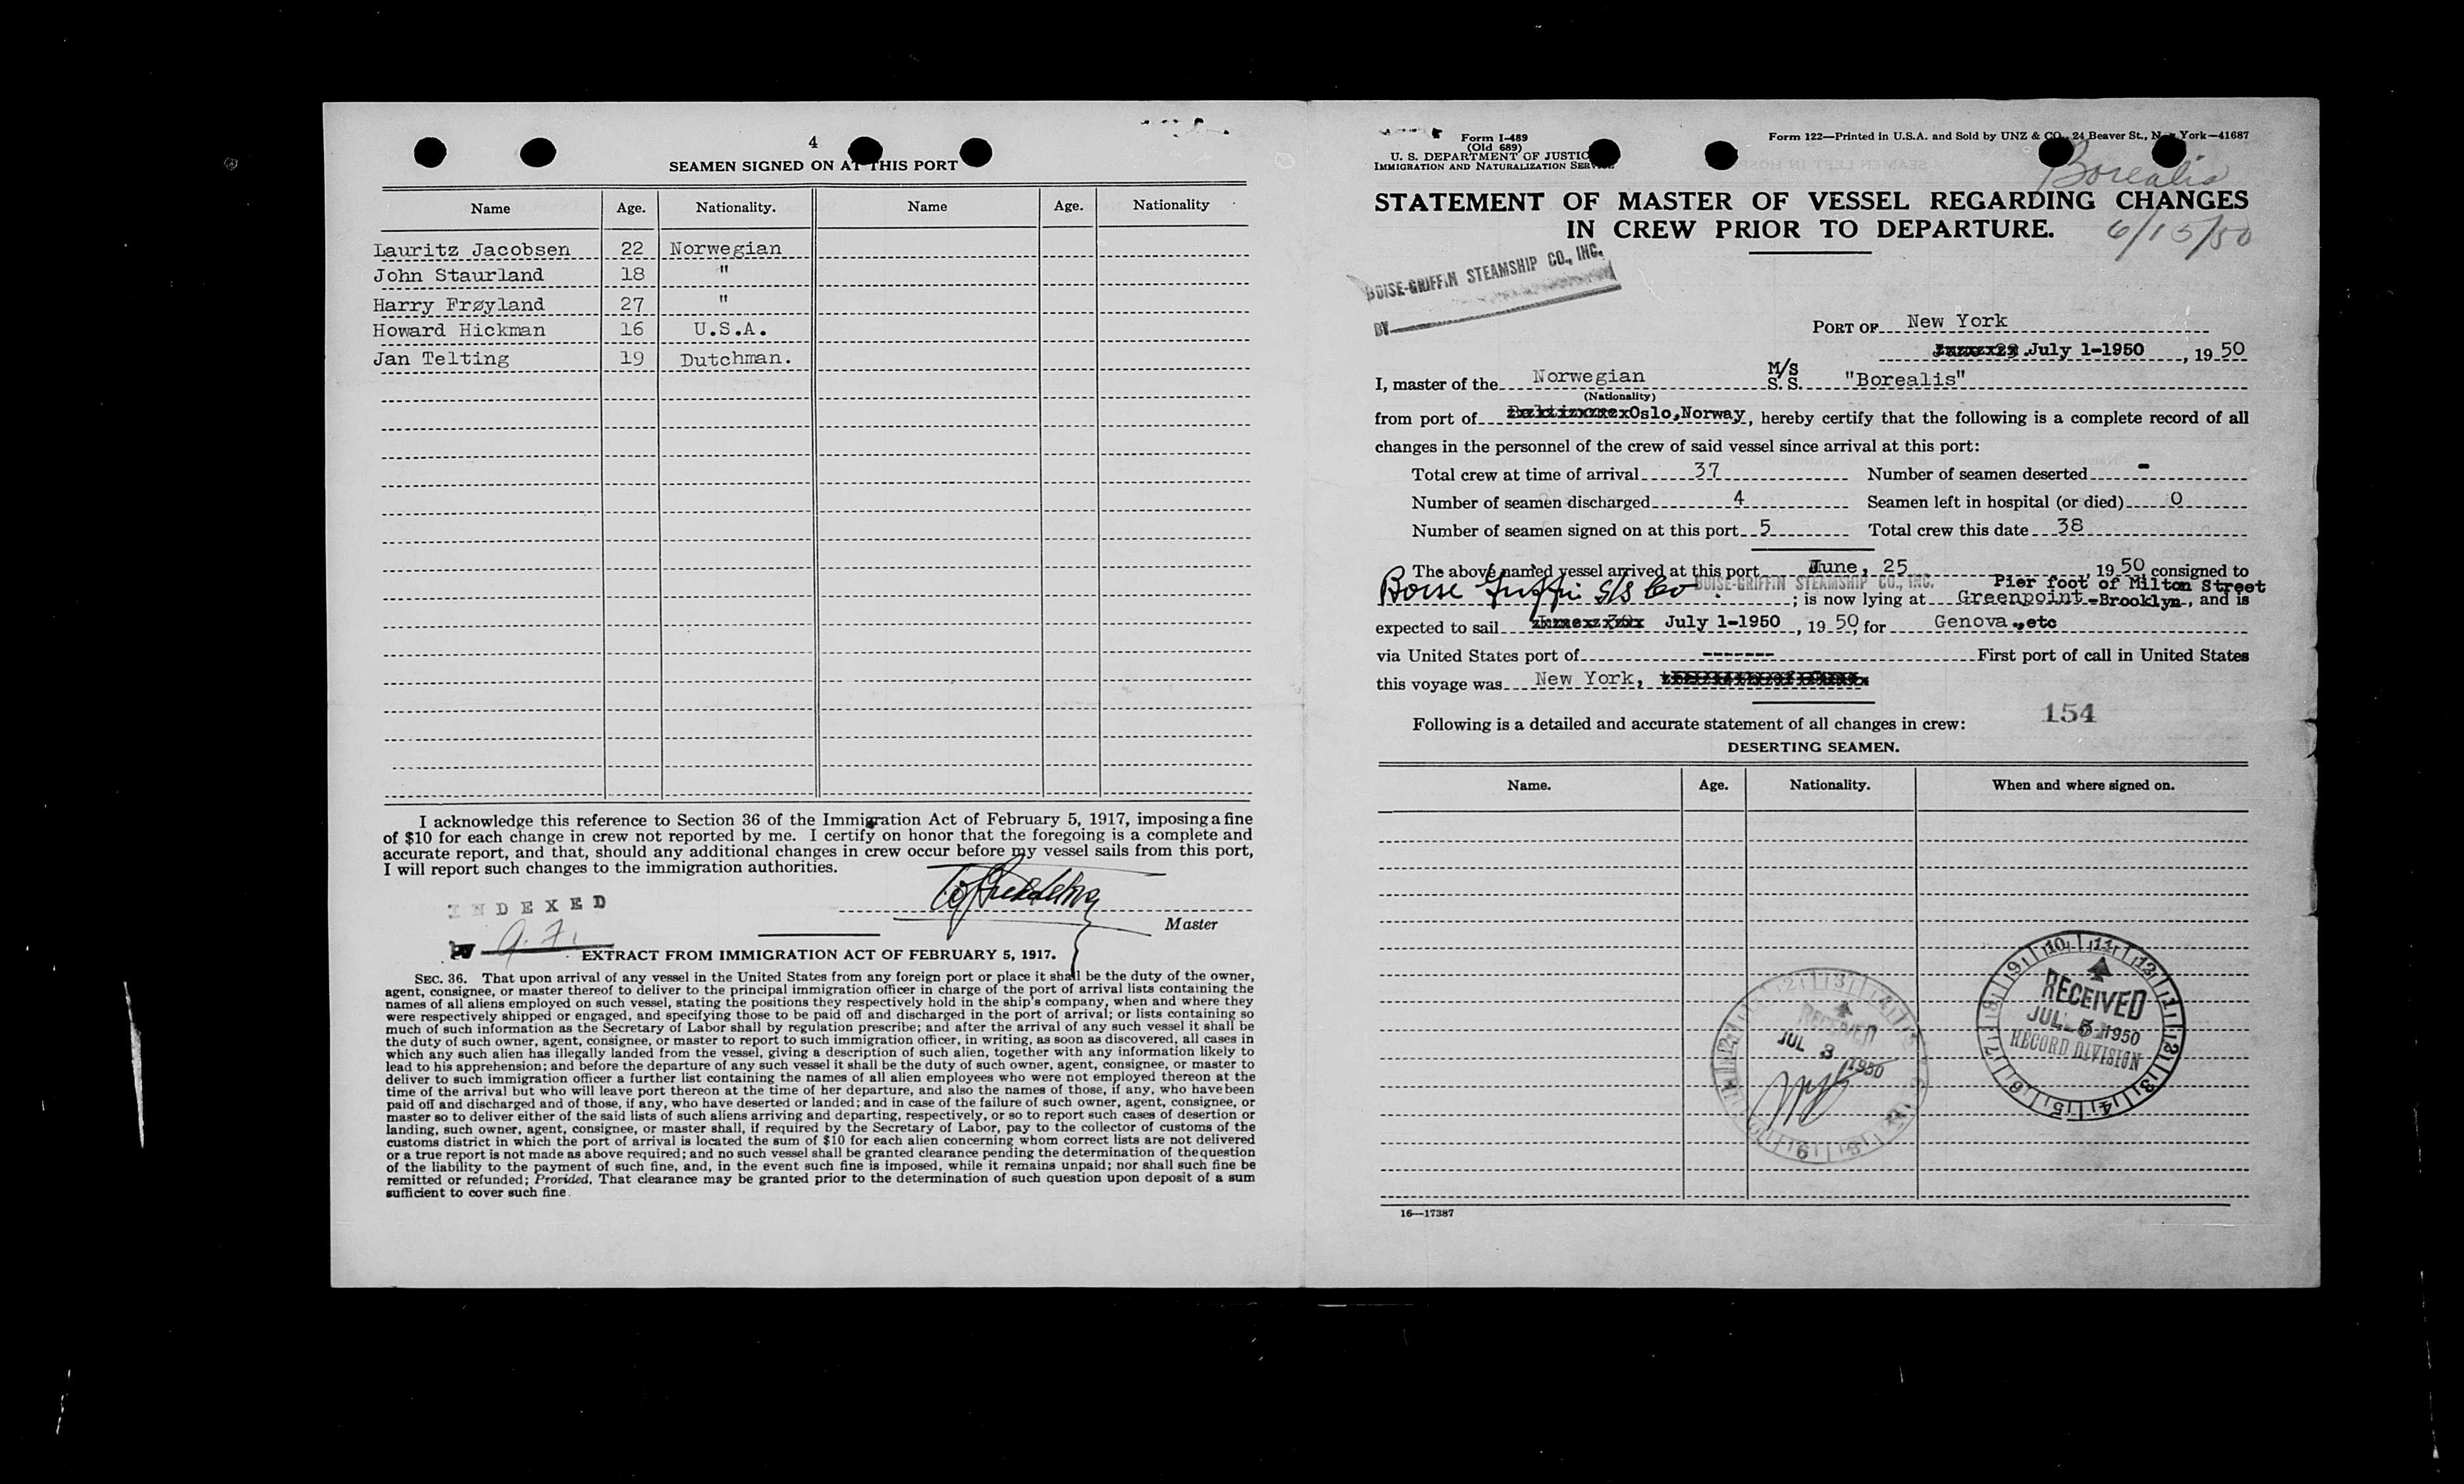 4
SEAMEN SIGNED ON AT THIS PORT
Name Age. Nationality. Name Age. Nationality
Lauritz Jacobsen 22 Norwegian
John Staurland 18 "
Harry Frøyland 27 "
Howard Hickman 16 U.S.A.
Jan Telting 19 Dutchman.
I acknowledge this reference to Section 36 of the Immigration Act of February 5, 1917, imposing a fine
of $10 for each change in crew not reported by me. I certify on honor that the foregoing is a complete and
accurate report, and that, should any additional changes in crew occur before my vessel sails from this port,
I will report such changes to the immigration authorities.
INDEXED
Master
EXTRACT FROM IMMIGRATION ACT OF FEBRUARY 5, 1917.
SEC. 36. That upon arrival of any vessel in the United States from any foreign port or place it shall be the duty of the owner,
agent, consignee, or master thereof to deliver to the principal immigration officer in charge of the port of arrival lists containing the
names of all aliens employed on such vessel, stating the positions they respectively hold in the ship's company, when and where they
were respectively shipped or engaged, and specifying those to be paid off and discharged in the port of arrival; or lists containing so
much of such information as the Secretary of Labor shall by regulation prescribe; and after the arrival of any such vessel it shall be
the duty of such owner, agent, consignee, or master to report to such immigration officer, in writing, as soon as discovered, all cases in
which any such alien has illegally landed from the vessel, giving a description of such alien, together with any information likely to
lead to his apprehension; and before the departure of any such vessel it shall be the duty of such owner, agent, consignee, or master to
deliver to such immigration officer a further list containing the names of all alien employees who were not employed thereon at the
time of the arrival but who will leave port thereon at the time of her departure, and also the names of those, if any, who have been
paid off and discharged and of those, if any, who have deserted or landed; and in case of the failure of such owner, agent, consignee, or
master so to deliver either of the said lists of such aliens arriving and departing, respectively, or so to report such cases of desertion or
landing, such owner, agent, consignee, or master shall, if required by the Secretary of Labor, pay to the collector of customs of the
customs district in which the port of arrival is located the sum of $10 for each alien concerning whom correct lists are not delivered
or a true report is not made as above required; and no such vessel shall be granted clearance pending the determination of the question
of the liability to the payment of such fine, and, in the event such fine is imposed, while it remains unpaid; nor shall such fine be
remitted or refunded; Provided, That clearance may be granted prior to the determination of such question upon deposit of a sum
sufficient to cover such fine.
Form I-489
(Old 689)
U. S. DEPARTMENT OF JUSTICE
IMMIGRATION AND NATURALIZATION SERVICE
Form 122—Printed in U.S.A. and Sold by UNZ & CO., 24 Beaver St., New York—41687
Borealis
STATEMENT OF MASTER OF VESSEL REGARDING CHANGES
IN CREW PRIOR TO DEPARTURE.
6/15/50
BOISE-GRIFFIN STEAMSHIP CO., INC.
BY
PORT OF New York
July 1-1950, 19 50
I, master of the Norwegian M/S S.S. "Borealis"
(Nationality)
from port of Oslo,Norway, hereby certify that the following is a complete record of all
changes in the personnel of the crew of said vessel since arrival at this port:
Total crew at time of arrival 37 Number of seamen deserted -
Number of seamen discharged 4 Seamen left in hospital (or died) 0
Number of seamen signed on at this port 5 Total crew this date 38
The above named vessel arrived at this port June, 25, 19 50, consigned to
Boise Griffin S/S Co BOISE-GRIFFIN STEAMSHIP CO., INC. ; is now lying at Pier foot of Milton Street Greenpoint-Brooklyn, and is
expected to sail July 1-1950, 19 50, for Genova.,etc
via United States port of ------- First port of call in United States
this voyage was New York,
154
Following is a detailed and accurate statement of all changes in crew:
DESERTING SEAMEN.
Name. Age. Nationality. When and where signed on.
RECEIVED
JUL 3 1950
RECEIVED
JUL 5 1950
RECORD DIVISION
16—17387